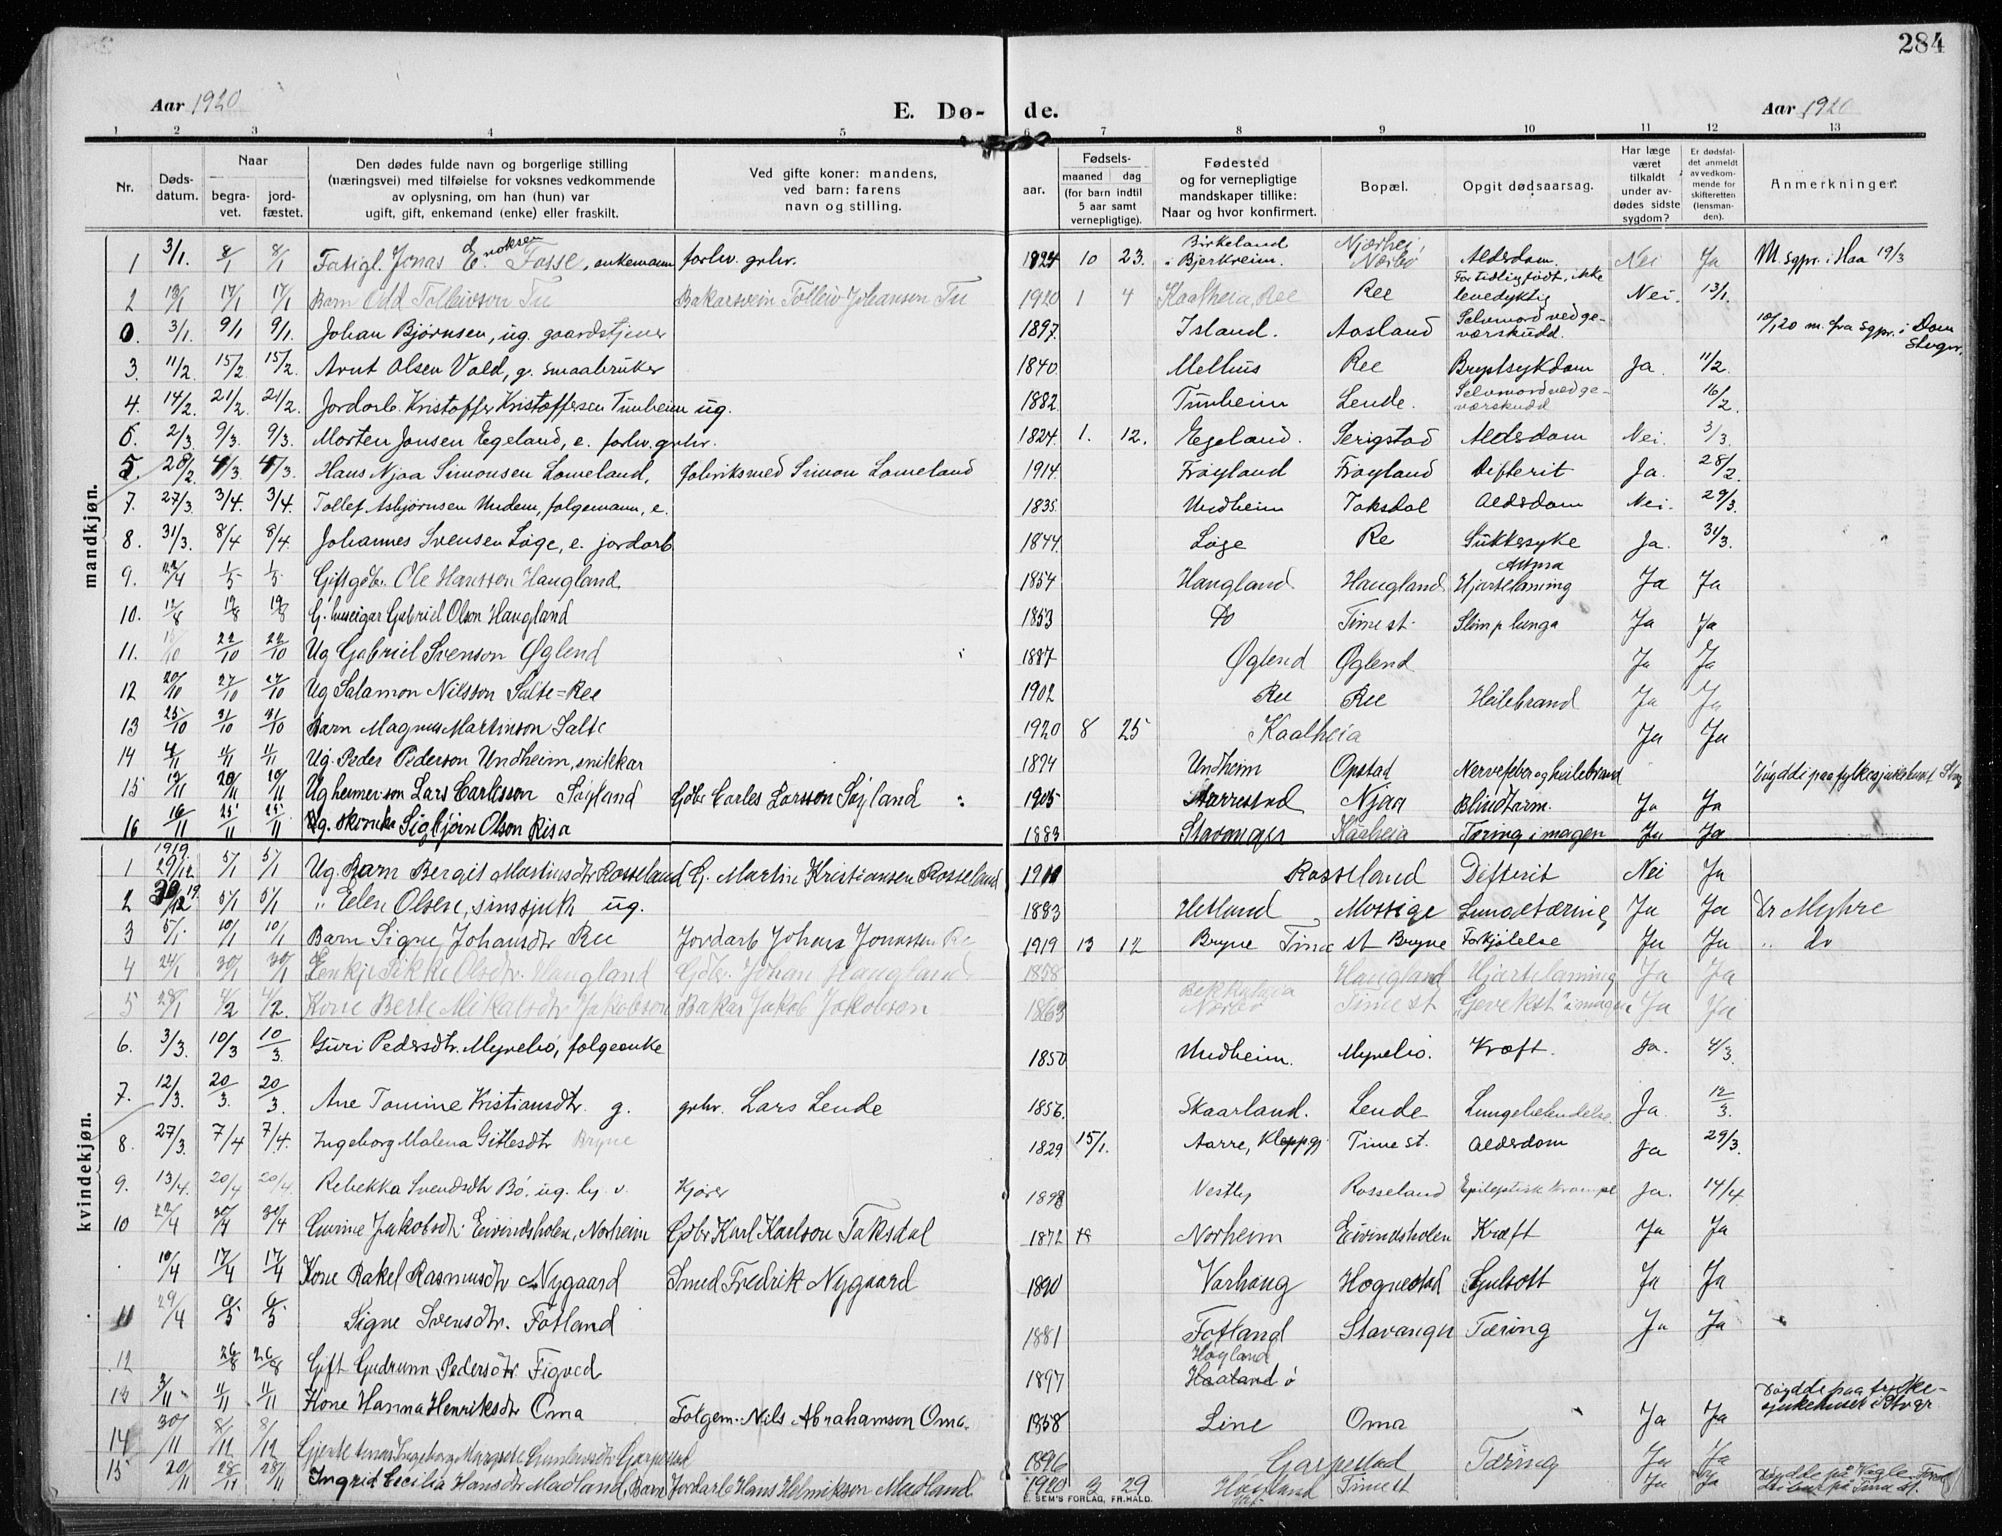 284
Aar 1920 E. Dø- de. Aar 1920
1 2 3 4 5 6 7 8 9 10 11 12 13
Nr.
Døds-
datum.
Naar
begra-
vet.
jord-
fæstet.
Den dødes fulde navn og borgerlige stilling
(næringsvei) med tilføielse for voksnes vedkommende
av oplysning, om han (hun) var
ugift, gift, enkemand (enke) eller fraskilt.
Ved gifte koner: mandens,
ved barn: farens
navn og stilling.
aar.
Fødsels-
maaned dag
(for barn indtil
5 aar samt
vernepligtige).
Fødested
og for vernepligtige
mandskaper tillike:
Naar og hvor konfirmert.
Bopæl.
Opgit dødsaarsag.
Har læge
været
tilkaldt
under av-
dødes sidste
sygdom?
Er dødsfal-
det anmeldt
av vedkom-
mende for
skifteretten
(lensman-
den).
Anmerkninger.
mandkjøn.
1 3/1. 8/1 8/1 Fatigl. Jonas Enoksen Fosse, enkemann forhv. grbr. 1824 10 23. Birkeland i Bjerkreim. Njærhei, Nærbø Aldsdom. Nei Ja M. sgpr. i Haa 19/3
2 13/1 17/1 17/1 Barn Odd Tolleivson Tu Bakarsvein Tolleiv Johansen Tu 1920 1 4 Kaalheia, Ree Ree For tidlig født, ikke levedyktig Nei. 13/1.
0. 3/1. 9/1 9/1. Johan Bjørnsen, ug. gaardstjener 1897. Island. Aasland Selvmord ved geværskudd. 10/1 20 m. fra sgpr. i Dom Stvgr.
3. 11/2. 15/2 15/2. Arnt Olsen Vold, g. smaabruker 1840 Melhus Ree Brystsykdom Ja. 11/2.
4. 14/2. 21/2. 21/2. Jordarb. Kristoffer Kristoffersen Tunheim ug. 1882. Tunheim Lende. Selvmord ved geværskudd 16/2.
6. 2/3. 9/3. 9/3. Morten Jonsen Egeland, e. forhv. grbr. 1824. 1. 12. Egeland. Serigstad Aldsdom Nei. 3/3.
5. 28/2. 4/3 4/3. Hans Njaa Simonsen Lomeland, fabriksmed Simon Lomeland 1914. Frøyland Frøyland Difterit Ja. 28/2.
7. 27/3. 3/4. 3/4. Tollef Asbjørnsen Undem, folgemann, e. 1835. Undheim Taksdal Aldsdom Nei. 29/3.
8. 31/3. 8/4 8/4. Johannes Svensen Løge, e. jordarb. 1844. Løge Ree Sukkersyke Ja. 31/3.
9. 22/4 1/5 1/5 Gift gbr. Ole Hansson Haugland 1854 Haugland Haugland Astma Hjartelaming Ja Ja
10. 12/8 19/8 19/8 G. huseigar Gabriel Olson Haugland 1853 Do Time st. Ja Ja
11. /10 22/10 22/10 Ug Gabriel Svenson Øglend 1887 Øglend Øglend Ja Ja
12 20/10 27/10 27/10 Ug Salamon Nilsson Salte=Ree 1902 Ree Ree Heilebrand Ja Ja
13 25/10 31/10 31/10 Barn Magnus Martinson Salte 1920 8 25 Kaalheia Ja Ja
14 4/11 11/11 11/11 Ug. Peder Pederson Undheim, snikkar 1894 Undheim Opstad Nervefeber og heilebrand Døydde paa fylkessjukehuset Stvg
15 12/11 20/11 20/11 Ug heimeson Lars Carlsson Søyland Gbr Carles Larsson Søyland 1905 Aarrestad Njaa Blindtarm. Ja Ja
16 16/11 25/11 25/11 Ug. Sigbjørn Olson Risa 1883 Stavanger Kaalheia Tæring i magen Ja Ja
kvindekjøn.
1 1919 29/12. 5/1 5/1 Ug Barn Bergit Martinsdtr Rosseland G. Martin Kristiansen Rosseland 1911 Rosseland Difterit Nei Ja
2 30/12 19. 5/1 5/1 " Elen Olsen, sinssjuk ug. 1883 Hetland Mossige Lungetæring Ja Ja Dr Myhre
3 5/1. 10/1 10/1 Barn Signe Johansdtr Ree Jordarb Johans Jonassen Re 1919 13 12 Bryne Time st Bryne Forkjølelse Ja Ja " do
4 24/1 30/1 30/1 Enkje Sikke Olsdtr. Haugland Gbr. Johan Haugland 1858 Haugland Hjartelaming Ja Ja
5 28/1 4/2 4/2. Kone Berte Mikalsdtr Jakobson Bakar Jakob Jakobson 1863 Nærbø Time st Ja Ja
6. 3/3. 10/3 10/3 Guri Pedersdtr. Myrebø, folgeenke 1850 Undheim. Myrebø. Kræft. Ja. 4/3.
7. 12/3. 20/3. 20/3. Ane Tomine Kristiansdtr. g. grbr. Lars Lende 1856. Skaarland. Lende Lungebetendelse. Ja. 12/3.
8. 27/3. 7/4 7/4. Ingeborg Malena Gitlesdtr Bryne 1829 15/1. Aarre, Klepp gj. Time st. Aldersdom Ja 29/3.
9. 13/4. 20/4 20/4. Rebekka Svendsdtr Bø, ug. Kjører 1898 Vestly Rosseland Epileptisk krampe Ja. 14/4.
10 22/4 30/4 30/4 Jakobsdtr. Eivindsholen, Norheim Gbr Karl Karlson Taksdal 1872 Norheim Eivindsholen Kræft Ja Ja
. 10/4 17/4 17/4 Kone Rakel Rasmusdtr Nygaard Smed Fredrik Nygaard 1890 Varhaug Hognestad Ja Ja
11 29/4 6/5 6/5 Signe Svensdtr. Fotland 1881 Fotland Stavanger Tæring Ja Ja
12 26/8 26/8 Gift Gudrunn Pedersdtr Figved 1897 Høyland
13 3/11 11/11 11/11 Kone Hanna Henriksdtr Oma Folgem. Nils Abrahamson Oma. 1858 Line Oma Ja Ja Døydde paa fylkesjukehuset i Stvgr
14 30/11 8/12 8/12 Gjente Ingeborg Margrete Garpestad 1896 Garpestad Tæring Ja Ja
15 20/11 28/11 28/11 Ingrid Cecilia Hansdtr Mudland, Barn Jordarb Hans Helmikson Mudland 1920 3 29 Høyland Time st Ja Ja Døydde på Time st.
E. SEM'S FORLAG, FR.HALD.